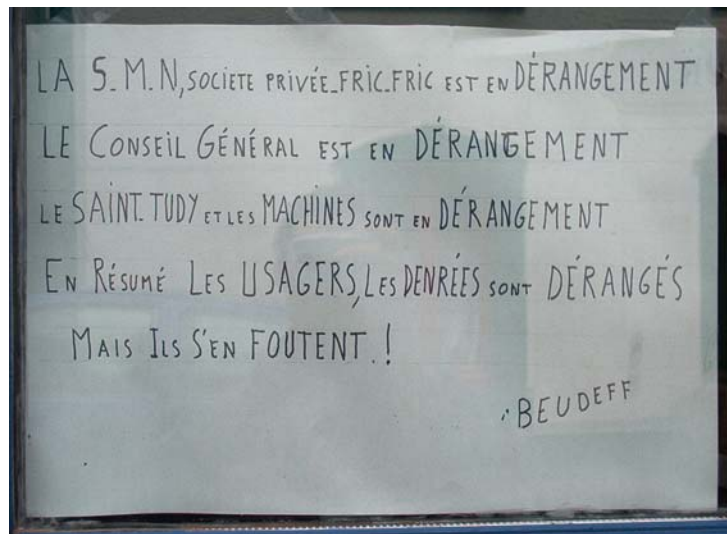 LA S.M.N, SOCIETE PRIVÉE_FRIC_FRIC EST EN DÉRANGEMENT
LE CONSEIL GÉNÉRAL EST EN DÉRANGEMENT
LE SAINT.TUDY ET LES MACHINES SONT EN DÉRANGEMENT
EN RÉSUMÉ LES USAGERS, LES DENRÉES SONT DÉRANGÉS
MAIS ILS S'EN FOUTENT.!
BEUDEFF